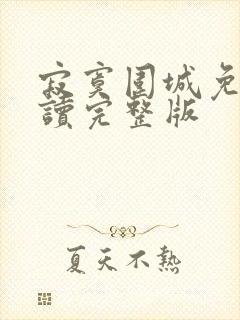 寂寞围城免
讀完整版
夏天不熱